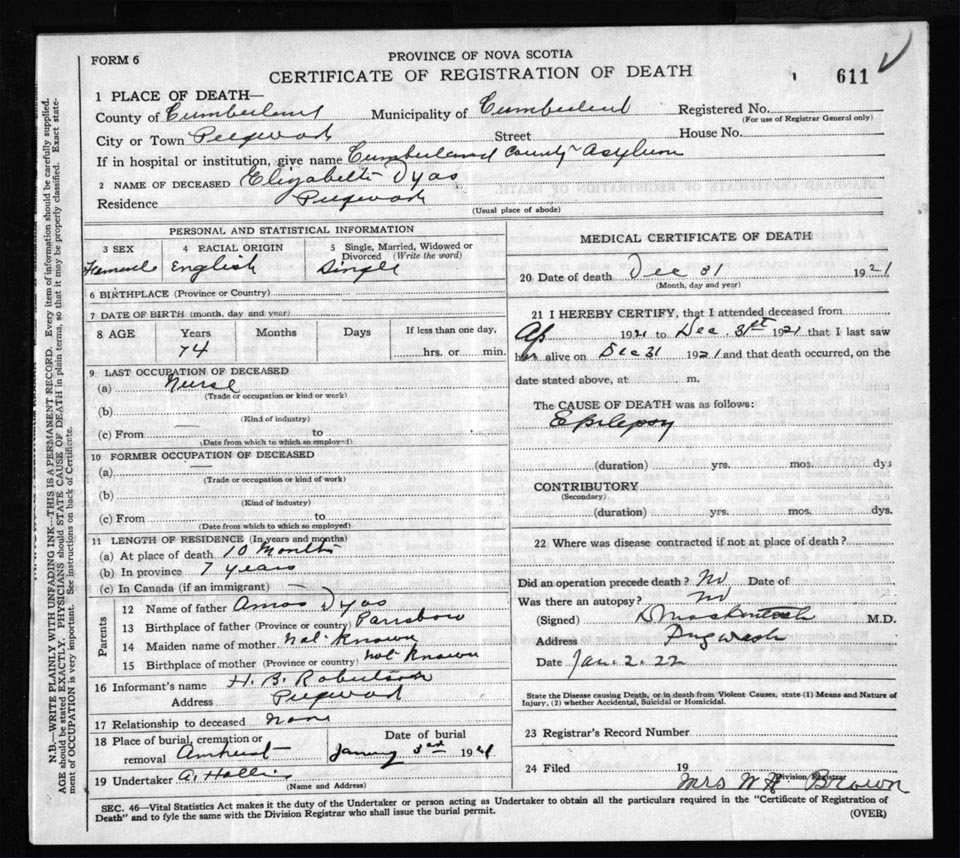 FORM 6
PROVINCE OF NOVA SCOTIA
CERTIFICATE OF REGISTRATION OF DEATH
611
1 PLACE OF DEATH—
County of Cumberland Municipality of Cumberland Registered No.
(For use of Registrar General only)
City or Town Pugwash Street House No.
If in hospital or institution, give name Cumberland County Asylum
2 NAME OF DECEASED Elizabeth Dyas
Residence Pugwash
(Usual place of abode)
PERSONAL AND STATISTICAL INFORMATION
3 SEX 4 RACIAL ORIGIN 5 Single, Married, Widowed or Divorced (Write the word)
English Single
6 BIRTHPLACE (Province or Country)
7 DATE OF BIRTH (month, day and year)
8 AGE Years Months Days If less than one day,
74 hrs. or min.
9 LAST OCCUPATION OF DECEASED
(a) Nurse
(Trade or occupation or kind or work)
(b)
(Kind of industry)
(c) From to
(Date from which to which so employed)
10 FORMER OCCUPATION OF DECEASED
(a)
(Trade or occupation or kind of work)
(b)
(Kind of industry)
(c) From to
(Date from which to which so employed)
11 LENGTH OF RESIDENCE (In years and months)
(a) At place of death 10 Months
(b) In province 7 years
(c) In Canada (if an immigrant)
Parents
12 Name of father Amos Dyas
13 Birthplace of father (Province or country) Parrsboro
14 Maiden name of mother not known
15 Birthplace of mother (Province or country) not known
16 Informant's name H. B. Robertson
Address Pugwash
17 Relationship to deceased none
18 Place of burial, cremation or removal Amherst
Date of burial
January 3rd 1921
19 Undertaker A. Hollis
(Name and Address)
MEDICAL CERTIFICATE OF DEATH
20 Date of death Dec 31 1921
(Month, day and year)
21 I HEREBY CERTIFY, that I attended deceased from
Ap 1921 to Dec. 31st 1921 that I last saw
her alive on Dec 31 1921 and that death occurred, on the
date stated above, at m.
The CAUSE OF DEATH was as follows:
Epilepsy
(duration) yrs. mos. dys
CONTRIBUTORY
(Secondary)
(duration) yrs. mos. dys.
22 Where was disease contracted if not at place of death?
Did an operation precede death? No Date of
Was there an autopsy? No
(Signed) M.D.
Address Pugwash
Date Jan. 2. 22
State the Disease causing Death, or in death from Violent Causes, state (1) Means and Nature of
Injury, (2) whether Accidental, Suicidal or Homicidal.
23 Registrar's Record Number
24 Filed 19
Division Registrar
Mrs W H Brown
SEC. 46—Vital Statistics Act makes it the duty of the Undertaker or person acting as Undertaker to obtain all the particulars required in the "Certificate of Registration of
Death" and to fyle the same with the Division Registrar who shall issue the burial permit.
(OVER)
N.B.—WRITE PLAINLY WITH UNFADING INK—THIS IS A PERMANENT RECORD. Every item of information should be carefully supplied.
AGE should be stated EXACTLY. PHYSICIANS should STATE CAUSE OF DEATH in plain terms, so that it may be properly classified. Exact state-
ment of OCCUPATION is very important. See instructions on back of Certificate.